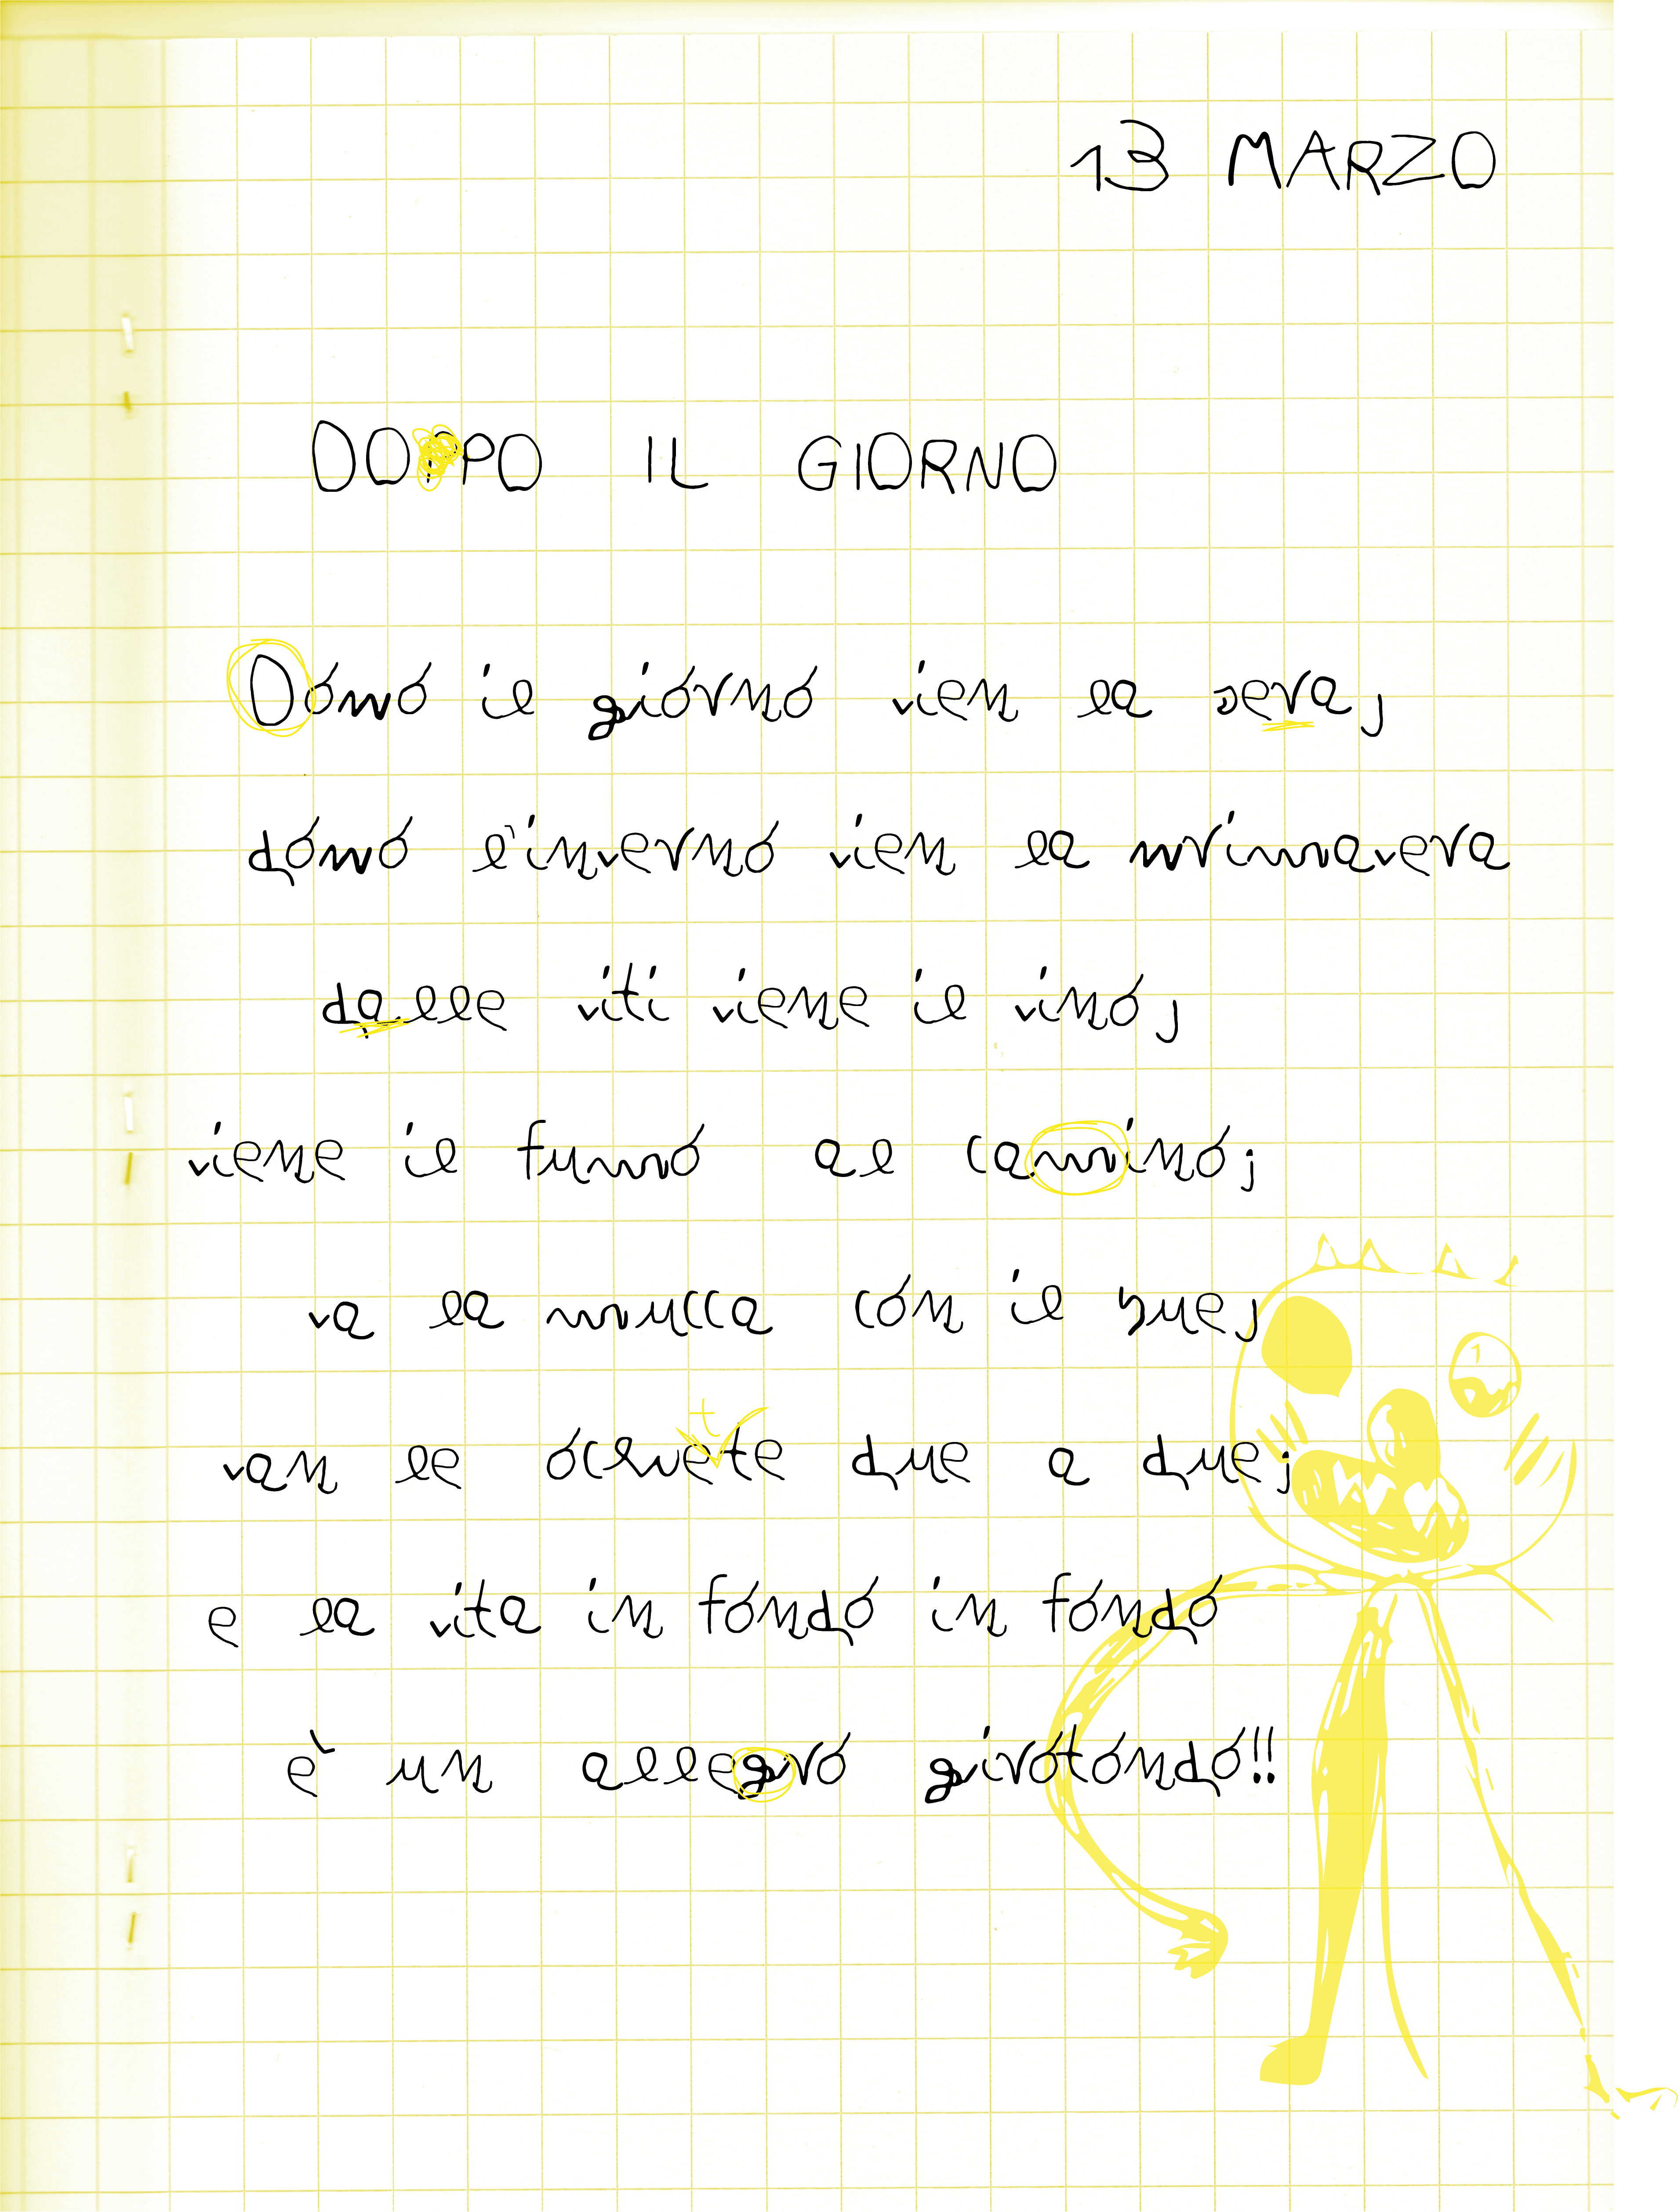 13 MARZO
DOPPO IL GIORNO
Dopo il giorno vien la sera,
dopo l'inverno vien la primavera
dalle viti viene il vino,
viene il fumo al camino;
va la mucca con il bue,
van le ochete due a due;
e la vita in fondo in fondo
è un allegro girotondo!!
t